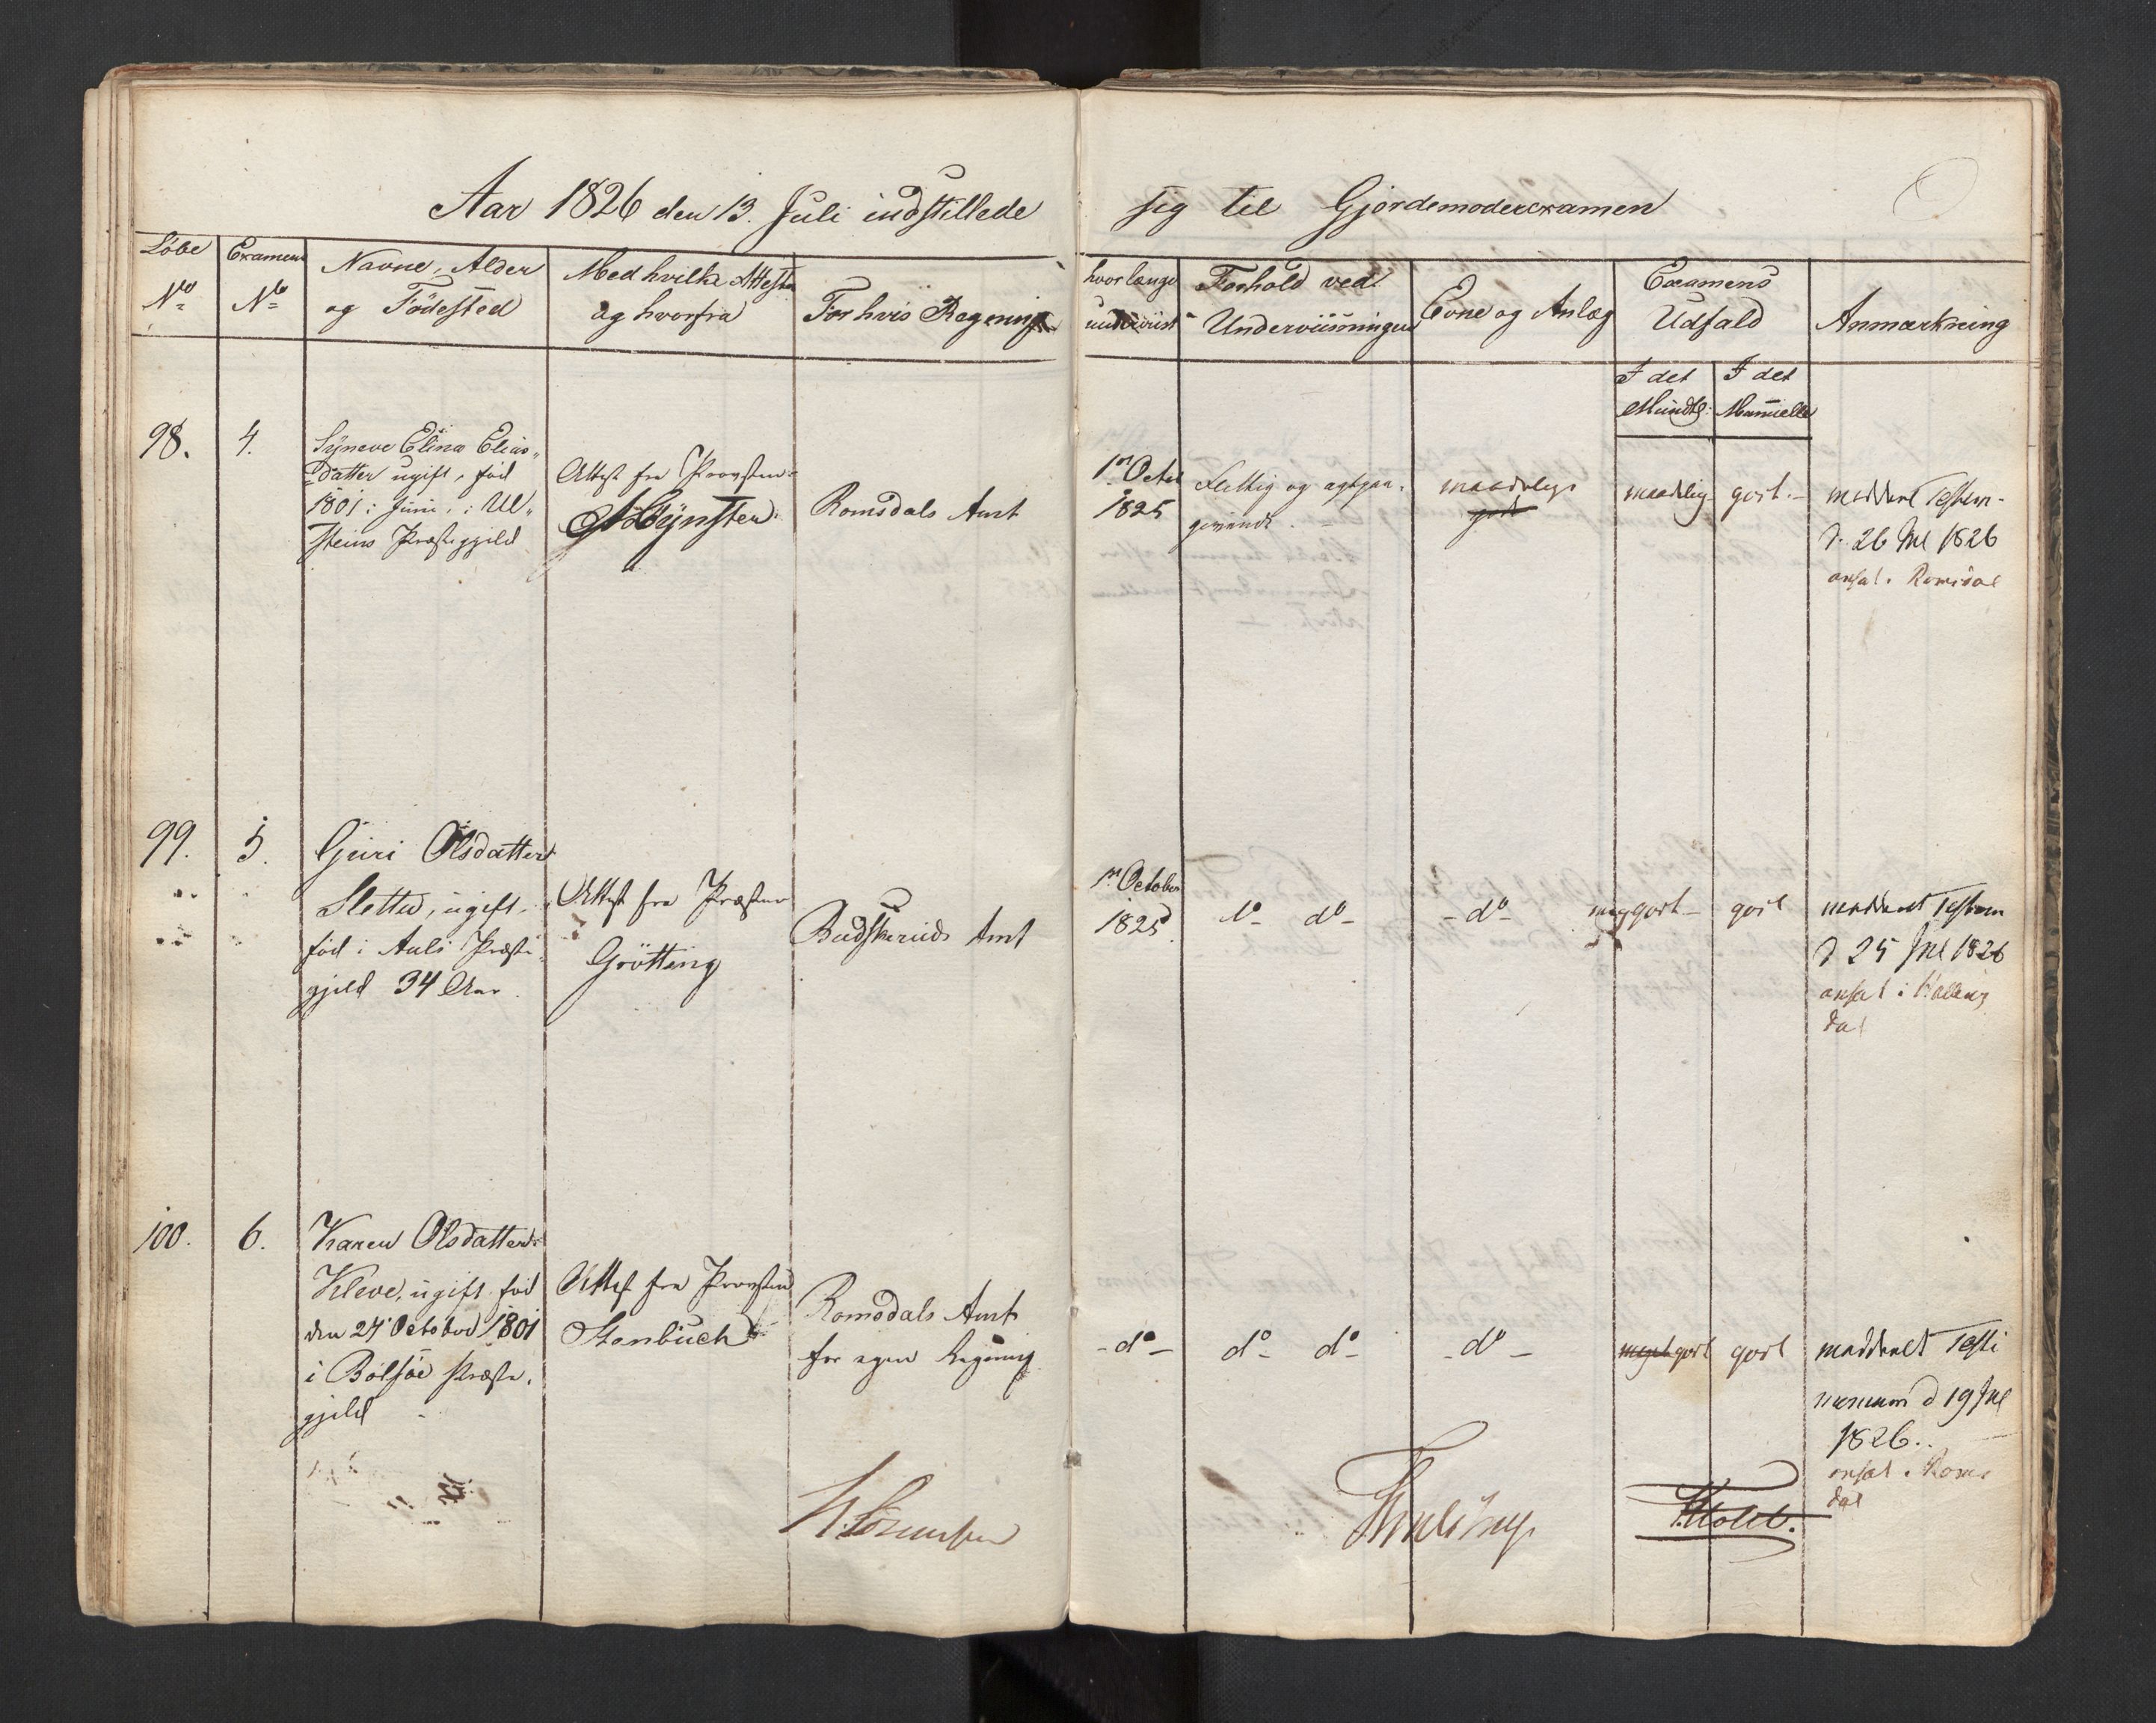 Aar 1826 den 13. Juli indstillede sig til Gjordemoderexamen
Löbe No
Examens No
Navne, Alder
og Födested
Med hvilke Attester
og hvorfra
For hvis Regning
hvorlænge
underviist
Forhold ved
Underviisningen
Evne og Anlæg
Examens
Udfald
I det
Mundtl:
I det
Manuelle
Anmærkning
98.
4.
Syneve Elina Elias-
datter ugift, föd
1801 i Juni, i Ul-
steins Præstegjeld
Attest fra Provsten
Romsdals Amt
1st Octob
1825
Flittig og agtpaa-
givende.
maadelige
god
maadelig
godt
meddelt Testim.
d. 26 Jul 1826
ansat i Romsdal
99.
5.
Guri Olsdatter
Slette, ugift,
föd i Aals Præste-
gjeld 34 Aar
Attest fra Præsten
Grötting
Budskeruds Amt
1st October
1825
do do
do
meg godt
godt
meddeelt Testim
d 25 Jul 1826
ansat i Halling
dal
100.
6.
Karen Olsdatter
Kleve, ugift föd
den 24 October 1801
i Bolsöe Præste-
gjeld
Attest fra Provsten
Stenbuch
Romsdals Amt
for egen Regning
do
do do
do
meget godt
godt
meddeelt Testi
monium d 19 Jul
1826.
ansat i Roms
dal
Thulstrup
Holst.